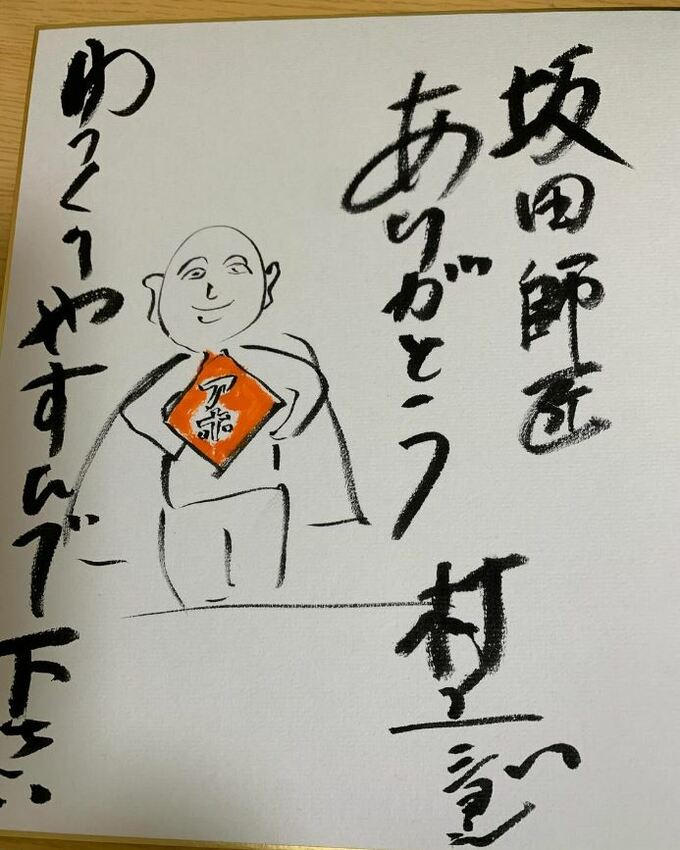 坂田師匠
ありがとう
村上
アホ
ゆっくりやすんで下さい